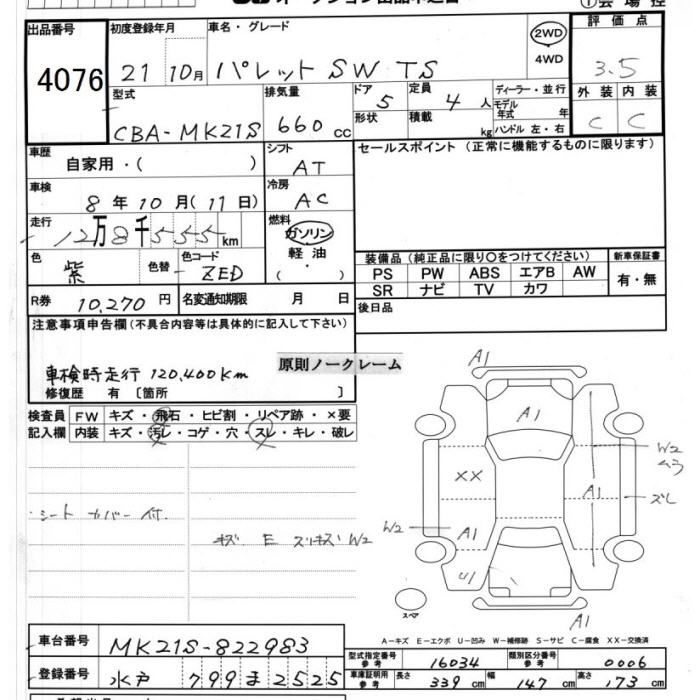 オークション出品申込書
会場控
出品番号
4076
初度登録年月
21 10月
車名・グレード
パレット SW TS
2WD
4WD
評価点
3.5
外装 内装
C C
型式
CBA-MK21S
排気量
660 cc
ドア
5
形状
定員
4 人
積載
kg
ディーラー・並行
モデル年式 年
ハンドル 左・右
車歴
自家用・( )
シフト
AT
セールスポイント (正常に機能するものに限ります)
車検
8 年 10 月 (11 日)
冷房
AC
走行
12万8千555 km
燃料
ガソリン
軽油
( )
色
紫
色替
色コード
ZED
装備品 (純正品に限り〇をつけてください)
新車保証書
PS PW ABS エアB AW
SR ナビ TV カワ
有・無
R券
10,270 円
名変通知期限 月 日
後日品
注意事項申告欄 (不具合内容等は具体的に記入して下さい)
車検時走行 120,400Km
原則ノークレーム
修復歴 有 〔箇所 〕
検査員
記入欄
FW キズ・飛石・ヒビ割・リペア跡・×要
内装 キズ・汚レ・コゲ・穴・スレ・キレ・破レ
・シートカバー付.
キズ E スリキズ W2
A1
A1
W2
ムラ
XX
A1
ズレ
W2
A1
U1
A1
スペア
A-キズ E-エクボ U-凹み W-補修跡 S-サビ C-腐食 XX-交換済
車台番号
MK21S-822983
登録番号
水戸 799 ま 2525
型式指定番号
参考
16034
類別区分番号
参考
0006
車庫証明用
参考
長さ 339 cm 幅 147 cm 高さ 173 cm